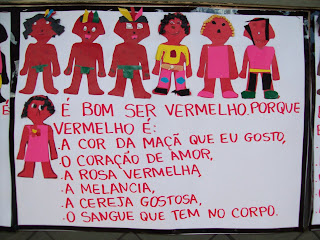 É BOM SER VERMELHO.PORQUE
VERMELHO É:
.A COR DA MAÇÃ QUE EU GOSTO,
.O CORAÇÃO DE AMOR,
.A ROSA VERMELHA,
.A MELANCIA,
.A CEREJA GOSTOSA,
.O SANGUE QUE TEM NO CORPO.